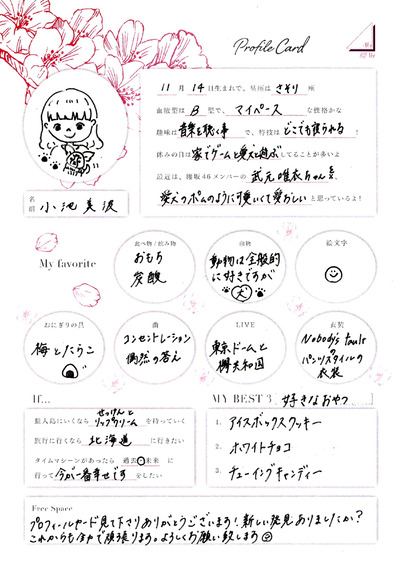 Profile Card
11月14日生まれで、星座はさそり座
血液型はB型で、マイペースな性格かな
趣味は音楽を聴く事で、特技はどこでも寝られる!
休みの日は家でゲームと愛犬と遊ぶしてることが多いよ
最近は、欅坂46メンバーの武元唯衣ちゃんを、
愛犬のポムのように可愛いくて愛おしいと思っているよ!
名前 小池美波
My favorite
食べ物/飲み物
おもち
炭酸
動物
動物は全般的
に好きですが
犬
絵文字
おにぎりの具
梅とたらこ
曲
コンセントレーション
偶然の答え
LIVE
東京ドームと
欅共和国
衣装
Nobody's faultの
パンツスタイルの
衣装
If...
無人島にいくならせっけんとリップクリームを持っていく
旅行に行くなら北海道に行きたい
タイムマシーンがあったら過去・未来に
行って今が一番幸せですをしたい
MY BEST 3 [好きなおやつ]
1. アイスボックスクッキー
2. ホワイトチョコ
3. チューイングキャンディー
Free Space
プロフィールカード見て下さりありがとうございます!新しい発見ありましたか?
これからも全力で頑張ります。よろしくお願い致します